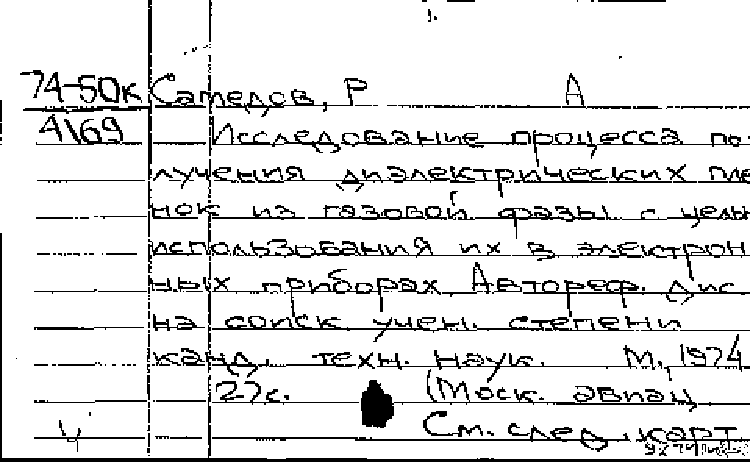 74-50к Саmедов, Р А
4169 Исследование процесса по-
лучения диэлектрических пле
нок из газовой фазы с целью
использования их в электрон
ных приборах. Автореф. дис.
на соиск. учен. степени
канд. техн. наук. М., 1974
27с. (Моск. авиац
См. след. карт.